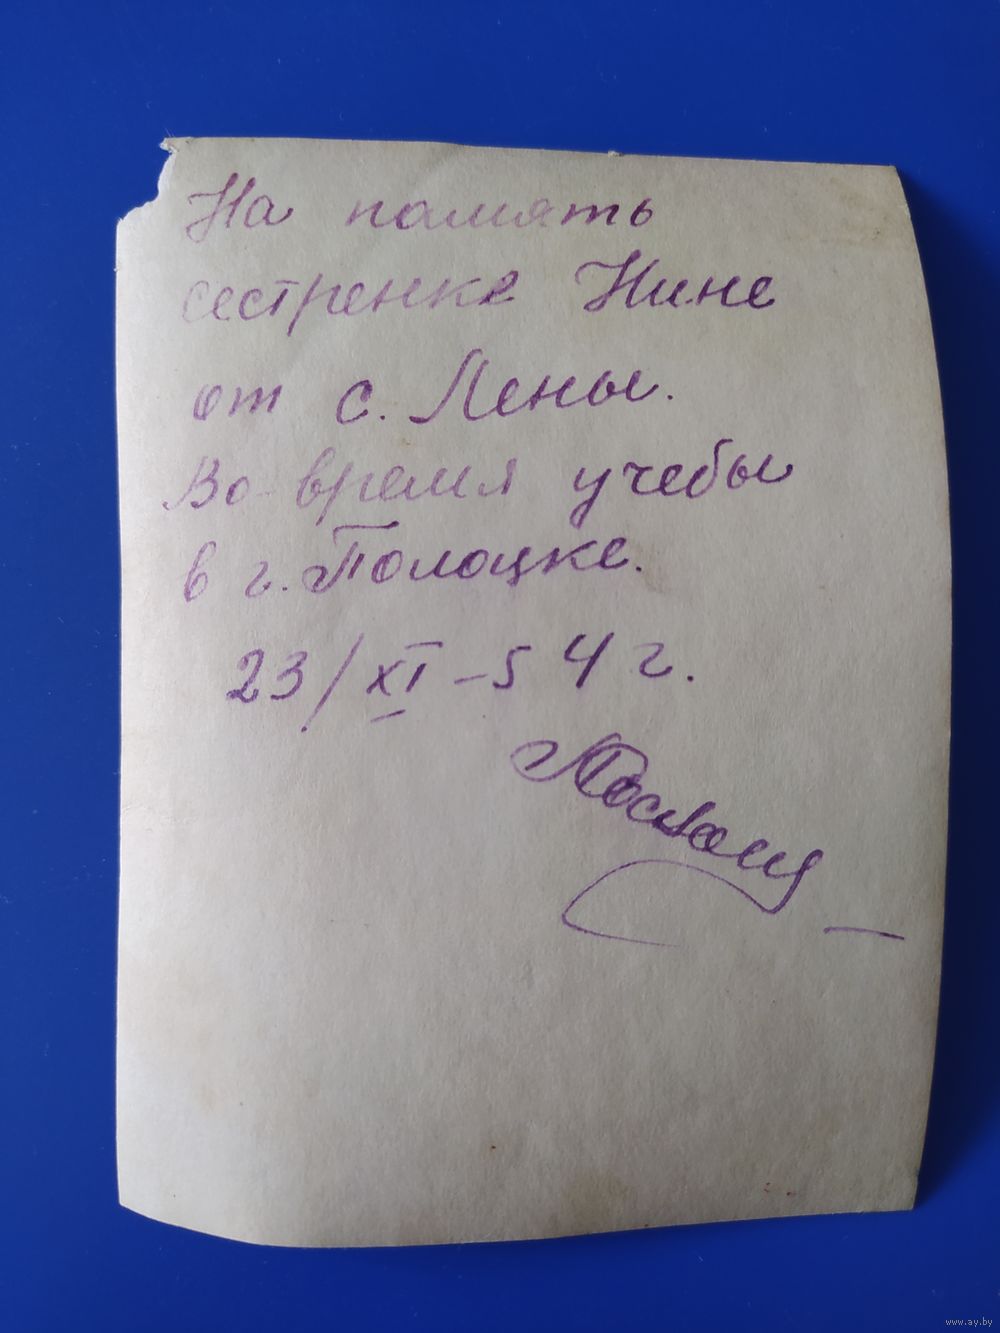 На память
сестренке Нине
от с. Лены.
Во время учебы
в г. Полоцке.
23/XI-54 г.
www.ay.by